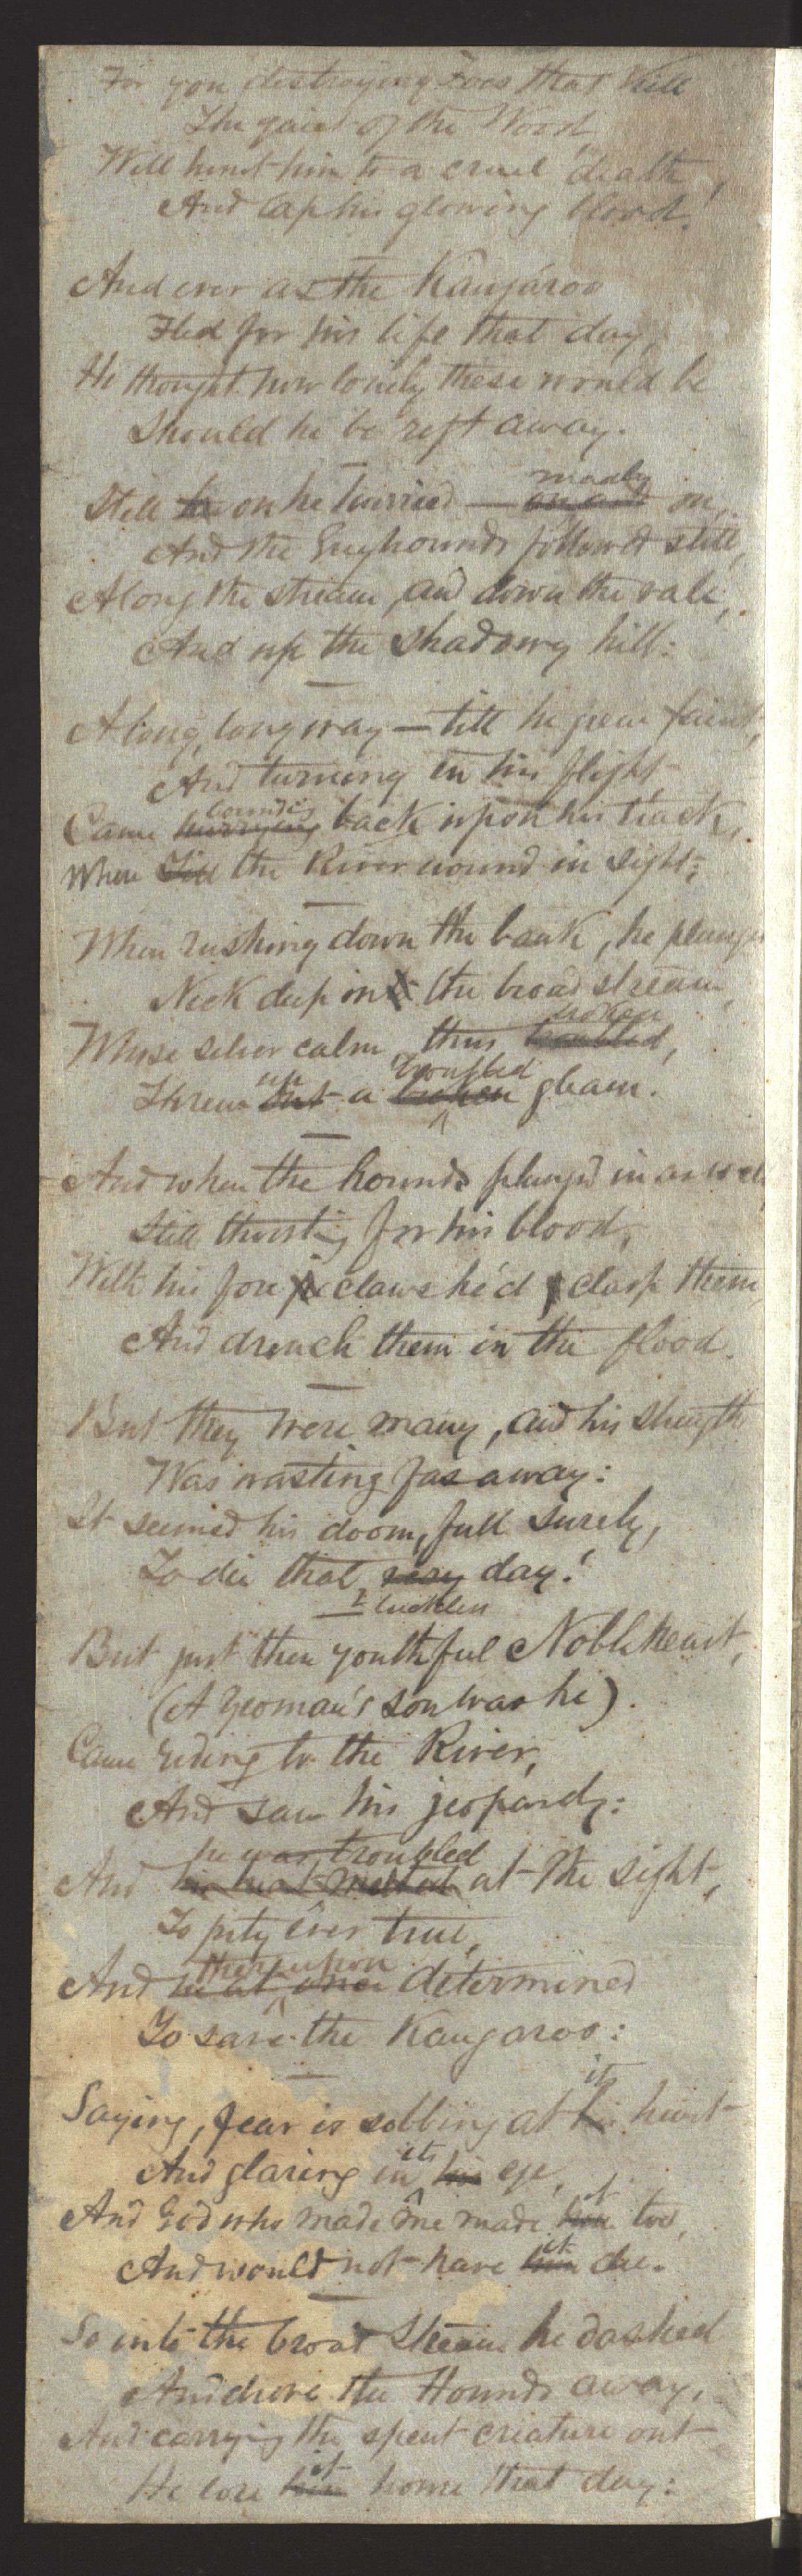 For you destroying foes that kill
The quiet of the Wood
Will hunt him to a cruel death,
And lap his glowing blood!
And ever as the Kangaroo
Fled for his life that day,
He thought how lonely these would be
Should he be reft away.
madly
Still he on he hurried — on,
And the Greyhounds follow'd still,
Along the stream, and down the vale,
And up the shadowy hill:
A long, long way — till he grew faint,
And turning in his flight
bounding
Came hurrying back upon his track,
Where Still the River wound in sight;
When rushing down the bank, he plunged
Neck deep in the broad stream,
broken
Whose silver calm, thus troubled,
up troubled
Threw out a broken gleam.
And when the hounds plunged in as well
Still thirsting for his blood,
With his fore claws he'd clasp them,
And drench them in the flood.
But they were many, and his strength
Was wasting fas away:
It seemed his doom, full surely,
To die that very day!
luckless
But just then youthful Nobleheart,
(A Yeoman's son was he)
Came riding to the River,
And saw his jeopardy:
he was troubled
And his heart melted at the sight,
To pity ever true,
thereupon
And he at once determined
To save the Kangaroo:
its
Saying, fear is sobbing at his heart
its
And glaring in his eye,
it
And God who made me made him too,
it
And would not have him die.
So into the broad stream he dashed
And drove the Hounds away,
And carrying the spent creature out
it
He bore him home that day: